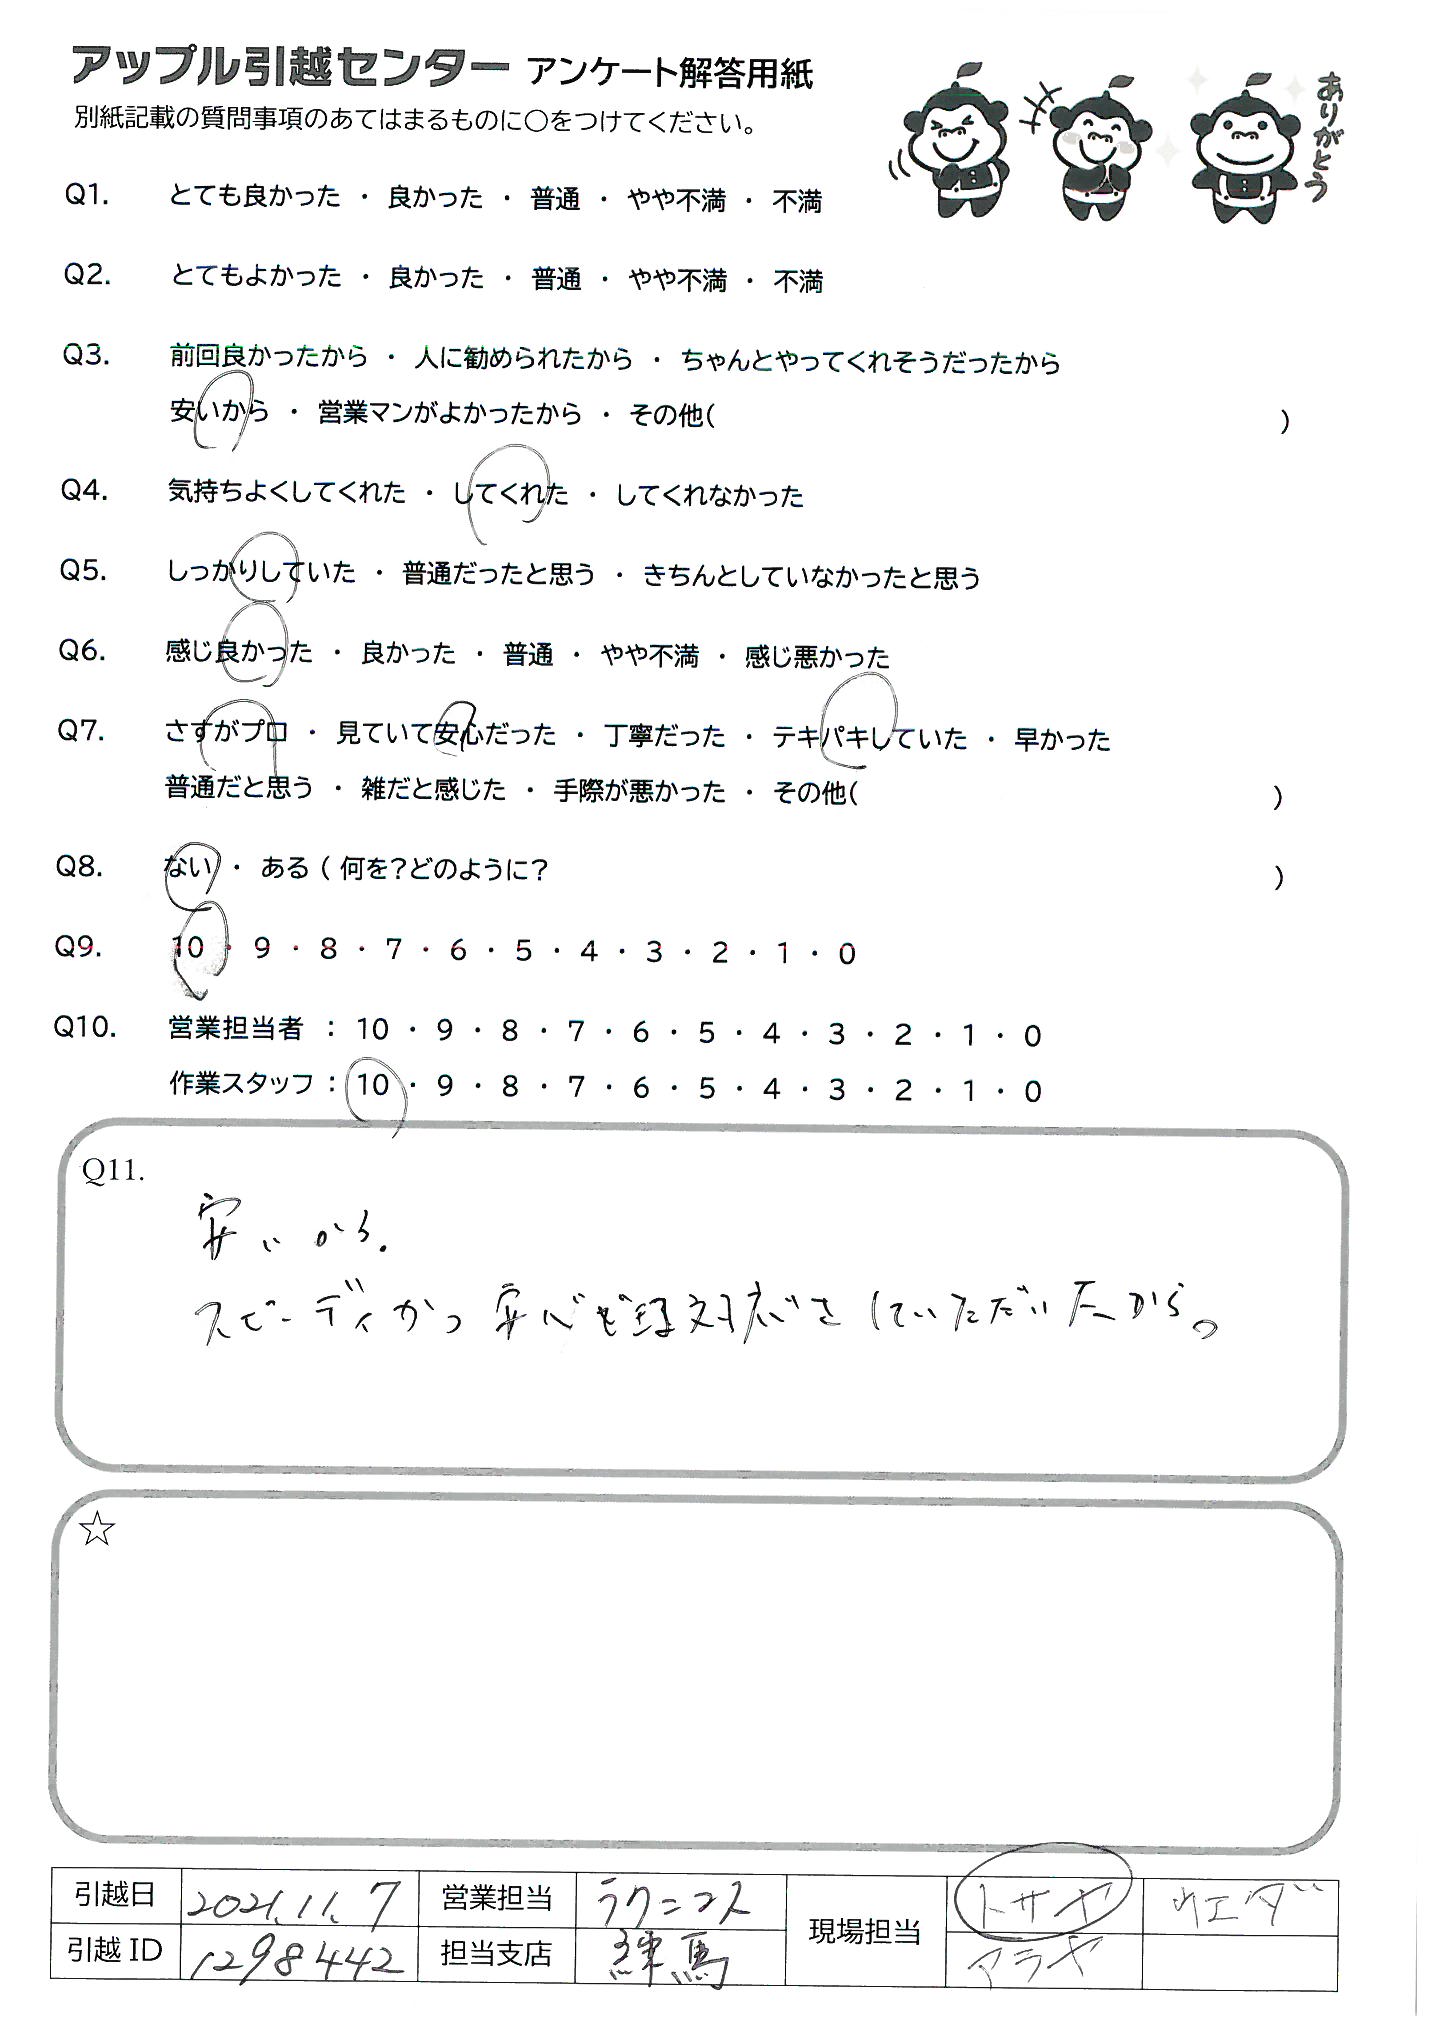 アップル引越センター アンケート解答用紙
別紙記載の質問事項のあてはまるものに○をつけてください。
ありがとう
Q1. とても良かった ・ 良かった ・ 普通 ・ やや不満 ・ 不満
Q2. とてもよかった ・ 良かった ・ 普通 ・ やや不満 ・ 不満
Q3. 前回良かったから ・ 人に勧められたから ・ ちゃんとやってくれそうだったから
安いから ・ 営業マンがよかったから ・ その他( )
Q4. 気持ちよくしてくれた ・ してくれた ・ してくれなかった
Q5. しっかりしていた ・ 普通だったと思う ・ きちんとしていなかったと思う
Q6. 感じ良かった ・ 良かった ・ 普通 ・ やや不満 ・ 感じ悪かった
Q7. さすがプロ ・ 見ていて安心だった ・ 丁寧だった ・ テキパキしていた ・ 早かった
普通だと思う ・ 雑だと感じた ・ 手際が悪かった ・ その他( )
Q8. ない ・ ある ( 何を?どのように? )
Q9. 10 ・ 9 ・ 8 ・ 7 ・ 6 ・ 5 ・ 4 ・ 3 ・ 2 ・ 1 ・ 0
Q10. 営業担当者 : 10 ・ 9 ・ 8 ・ 7 ・ 6 ・ 5 ・ 4 ・ 3 ・ 2 ・ 1 ・ 0
作業スタッフ : 10 ・ 9 ・ 8 ・ 7 ・ 6 ・ 5 ・ 4 ・ 3 ・ 2 ・ 1 ・ 0
Q11.
安いから.
スピーディかつ安心な対応をしていただいたから。
☆
引越日 2021.11.7 営業担当 ラクニコス 現場担当 トサヤ ウエダ
引越ID 1298442 担当支店 練馬 アラヤ